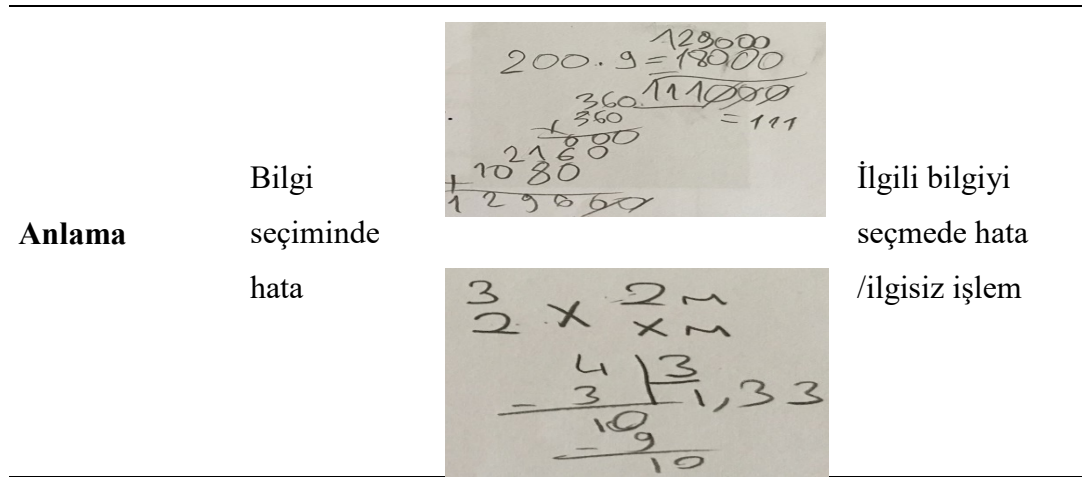 Anlama
Bilgi
seçiminde
hata
129000
200. 9 = 18000
111000
= 111
360
x 360
000
2160
+ 1080
129600
3 x 2 m
2 x m
4 | 3
- 3 1,33
10
- 9
10
İlgili bilgiyi
seçmede hata
/ilgisiz işlem